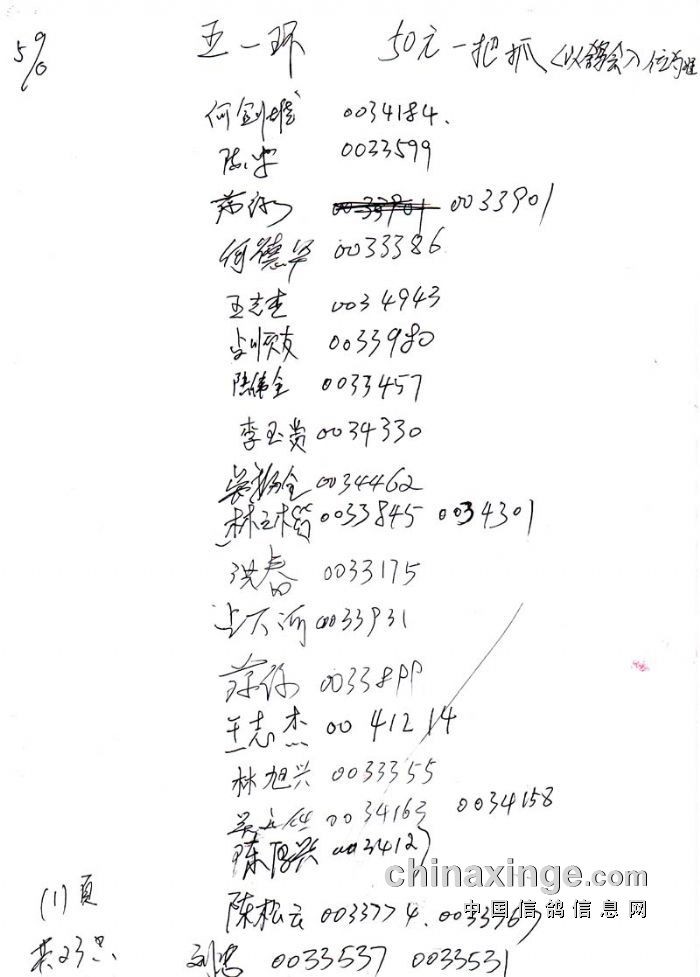 五一环 50元一把抓(以鸽会)位为准
何剑雄 0034184.
陈 0033599
0033901 0033901
何德华 0033386
王志杰 0034943
顺友 0033980
陈伟全 0033457
李玉贵 0034330
全 0034462
林 0033845 0034301
洪春 0033175
上下河 0033931
0033899
王志杰 0041214
林旭兴 0033355
0034163 0034158
陈 兴 003412
(1)页
陈松云 0033774. 003376
共23只
刘 0033537 0033531
chinaxinge.com
中国信鸽信息网